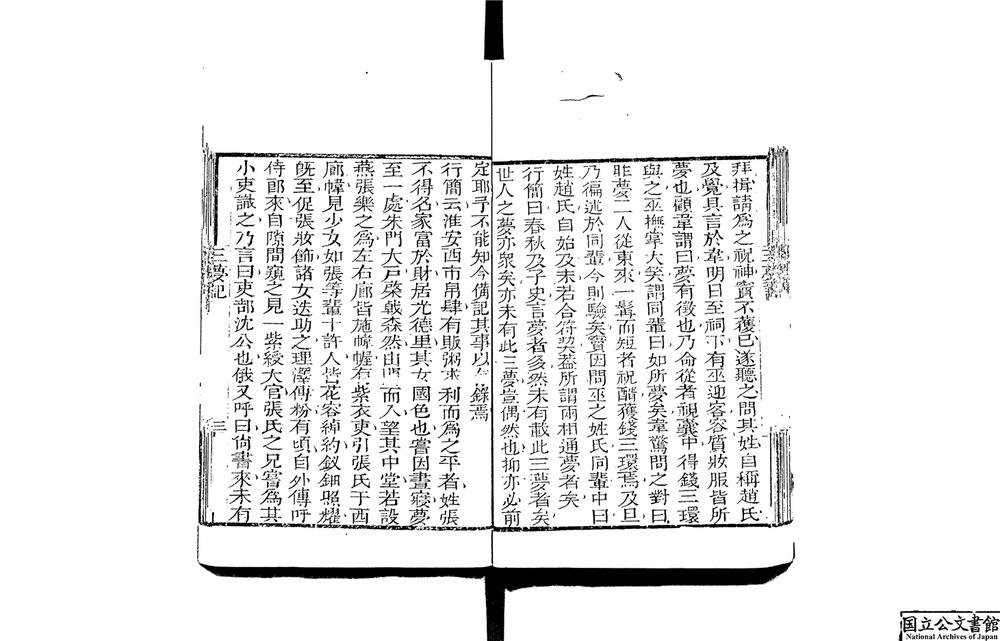 拜揖請為之祝神竇不獲已遂聽之問其姓自稱趙氏
及覺具言於韋明日至祠下有巫迎客容質妝服皆所
夢也顧韋謂曰夢有徵也乃命從者視囊中得錢三環
與之巫撫掌大笑謂同輩曰如所夢矣韋驚問之對曰
昨夢二人從東來一髯而短者祝醑獲錢三環焉及旦
乃徧述於同輩今則驗矣竇因問巫之姓氏同輩中曰
姓趙氏自始及末若合符契蓋所謂兩相通夢者矣
行簡曰春秋及子史言夢者多然未有載此三夢者矣
世人之夢亦衆矣亦未有此三夢豈偶然也抑亦必前
定耶予不能知今備記其事以存錄焉
行簡云淮安西市帛肆有販粥求利而為之平者姓張
不得名家富於財居光德里其女國色也嘗因晝寢夢
至一處朱門大戶棨戟森然由門而入望其中堂若設
燕張樂之為左右廊皆施幃幄有紫衣吏引張氏于西
廊幃見少女如張等輩十許人皆花容綽約釵鈿照耀
旣至促張妝飾諸女迭助之理澤傅粉有頃自外傳呼
侍郎來自隙間窺之見一紫綬大官張氏之兄嘗為其
小吏識之乃言曰吏部沈公也俄又呼曰尙書來未有
三夢記
三
国立公文書館
National Archives of Japan